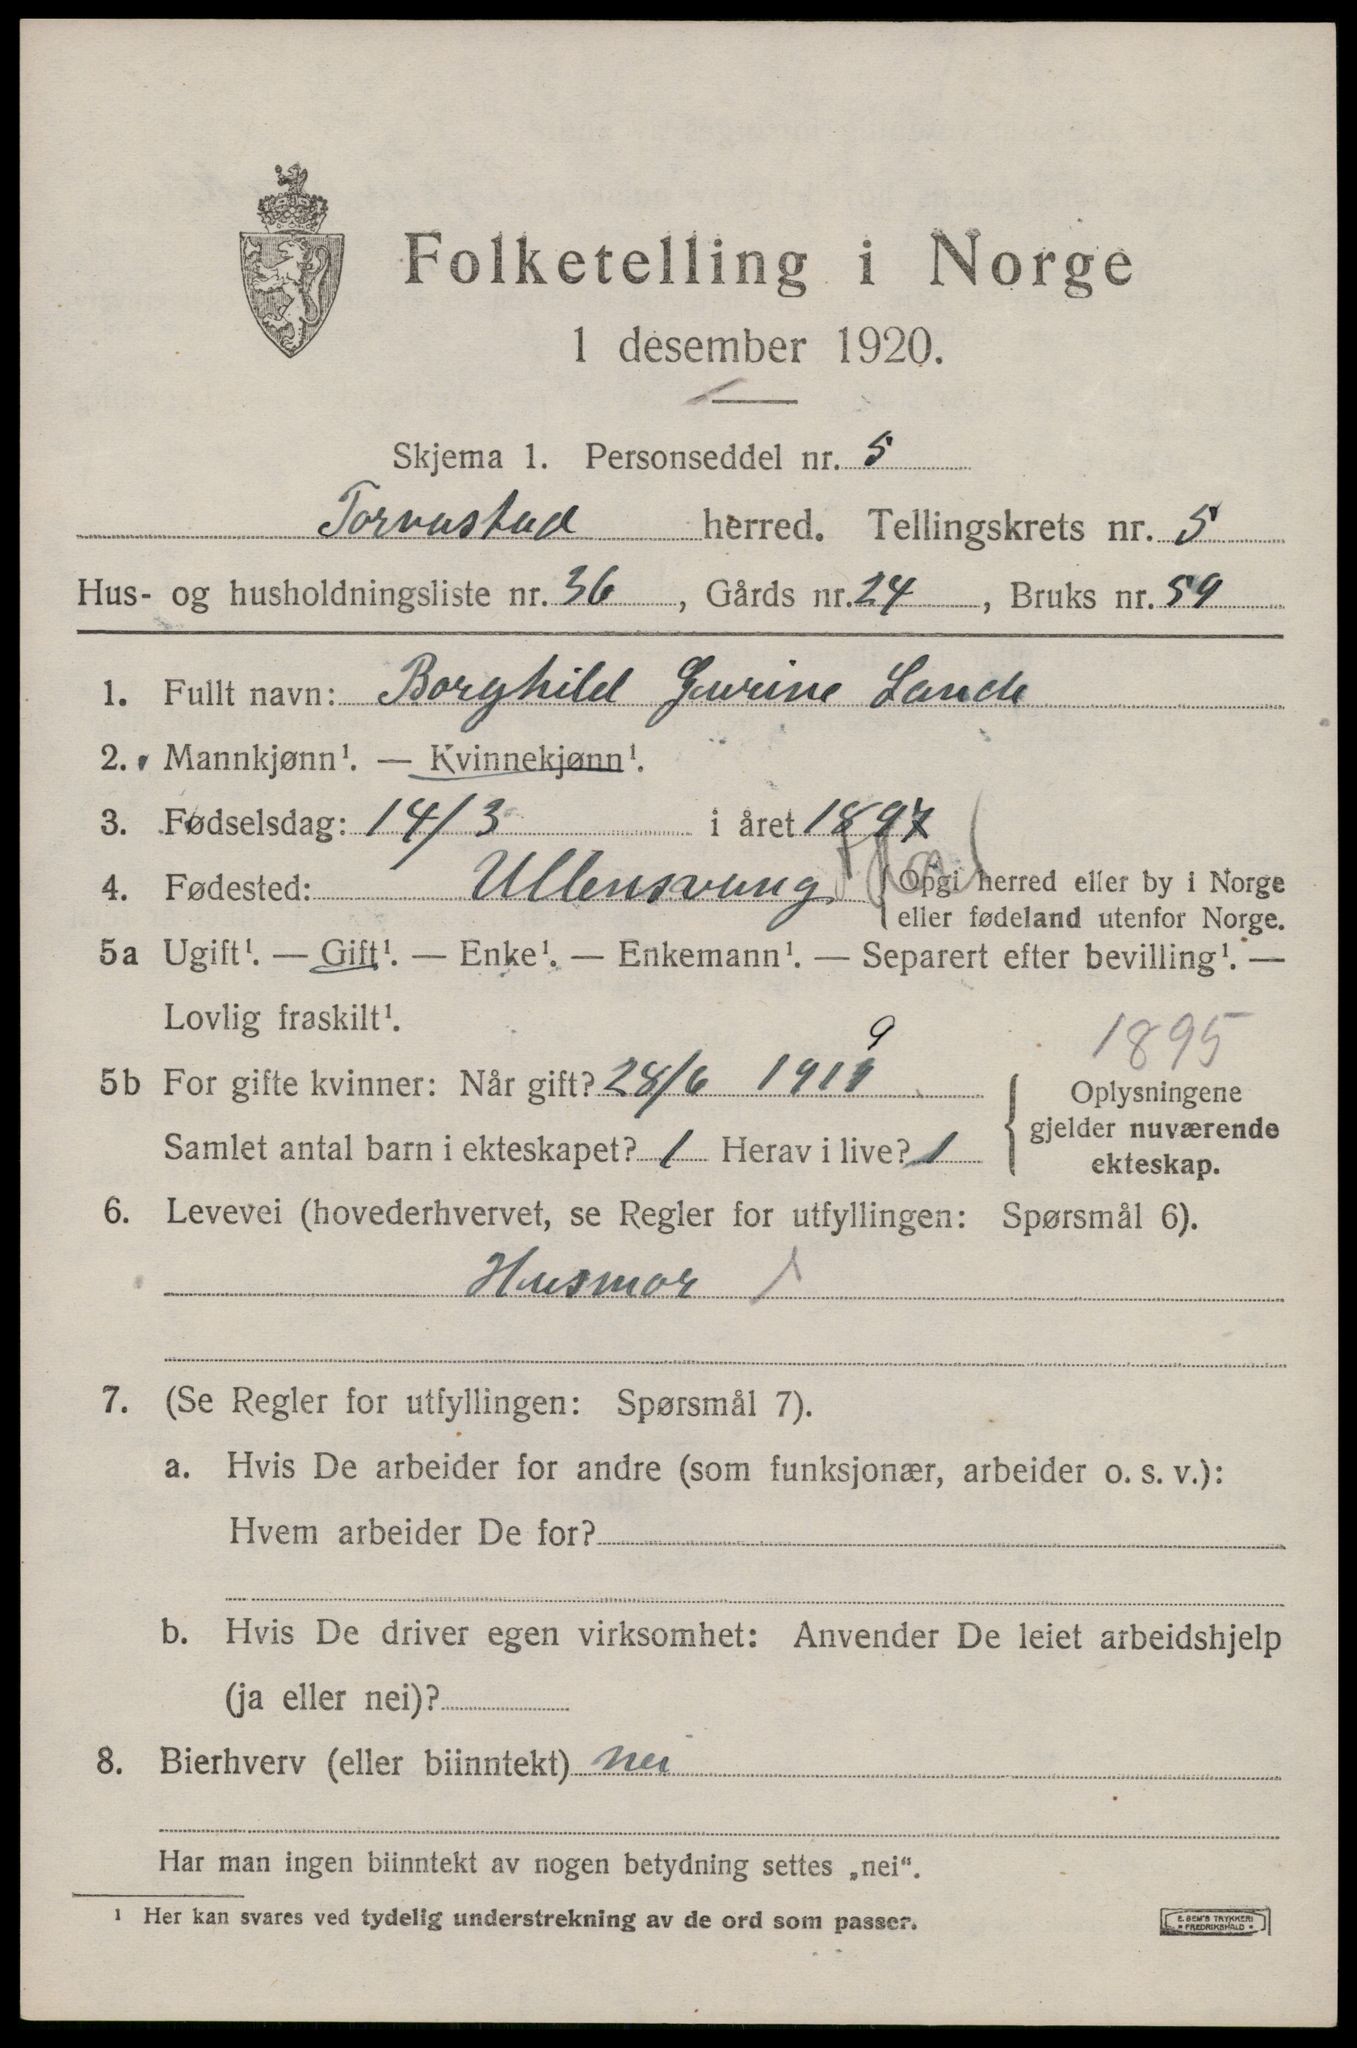 Folketelling i Norge
1 desember 1920.
Skjema 1. Personseddel nr. 5
Torvastad herred. Tellingskrets nr. 5
Hus- og husholdningsliste nr. 36, Gårds nr. 24, Bruks nr. 59
1. Fullt navn: Borghild Gurine Lande
2. Mannkjønn¹. — Kvinnekjønn¹.
3. Fødselsdag: 14/3 i året 1897
4. Fødested: Ullensvang
Opgi herred eller by i Norge
eller fødeland utenfor Norge.
5a Ugift¹. — Gift¹. — Enke¹. — Enkemann¹. — Separert efter bevilling¹. —
Lovlig fraskilt¹.
1895
9
5b For gifte kvinner: Når gift? 28/6 1919
Samlet antal barn i ekteskapet? 1 Herav i live? 1
Oplysningene
gjelder nuværende
ekteskap.
6. Levevei (hovederhvervet, se Regler for utfyllingen: Spørsmål 6).
Husmor
7. (Se Regler for utfyllingen: Spørsmål 7).
a. Hvis De arbeider for andre (som funksjonær, arbeider o. s. v.):
Hvem arbeider De for?
b. Hvis De driver egen virksomhet: Anvender De leiet arbeidshjelp
(ja eller nei)?
8. Bierhverv (eller biinntekt) nei
Har man ingen biinntekt av nogen betydning settes „nei“.
¹ Her kan svares ved tydelig understrekning av de ord som passer.
E. SEM'S TRYKKERI
FREDRIKSHALD